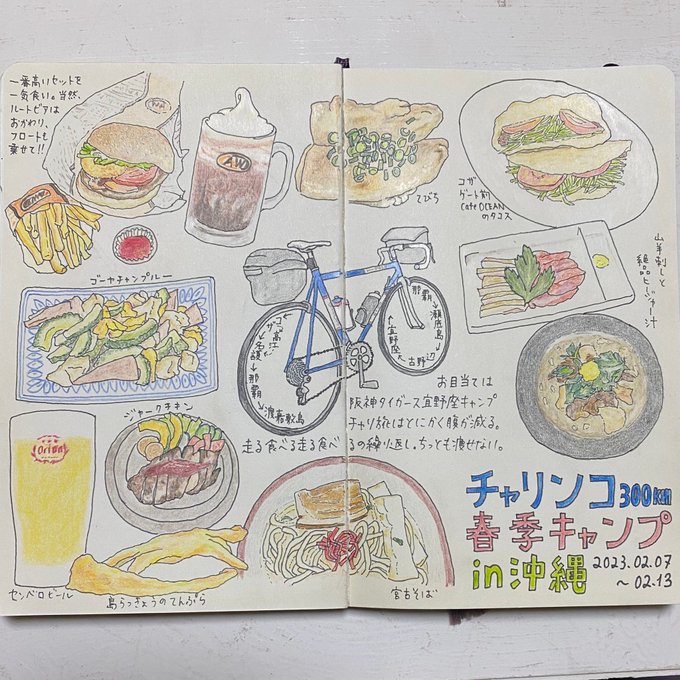 一番高いセットを
一気食い。当然、
ルートビアは
おかわり、
フロートも
乗せて!!
A&W
A&W
てびち
コザ
ゲート前
Cafe OCEAN
のタコス
山羊刺しと
絶品ヒージャー汁
ゴーヤチャンプルー
那覇
→瀬底島
→古野辺
→宜野座
→高江
→名護
→那覇
→渡嘉敷島
お目当ては
阪神タイガース宜野座キャンプ
チャリ旅はとにかく腹が減る。
走る食べる走る食べるの繰り返し。ちっとも痩せない。
ジャークチキン
Orion
センベロビール
島らっきょうのてんぷら
宮古そば
チャリンコ300KM
春季キャンプ
in沖縄
2023.02.07
～02.13